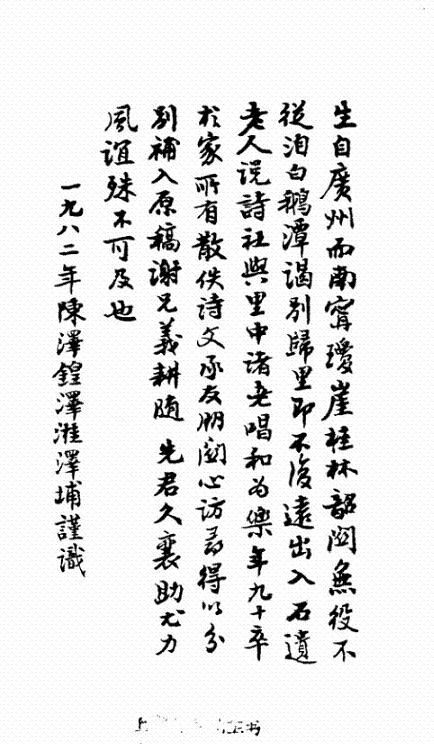 生自廣州而南甯瓊崖桂林韶關無役不
從洎白鵝潭謁別歸里即不復遠出入石遺
老人說詩社與里中諸老唱和為樂年九十卒
於家所有散佚詩文承友朋關心訪尋得以分
別補入原稿謝兄義耕隨 先君久襄助尤力
風誼殊不可及也
一九八二年陳澤鍠澤淮澤埔謹識